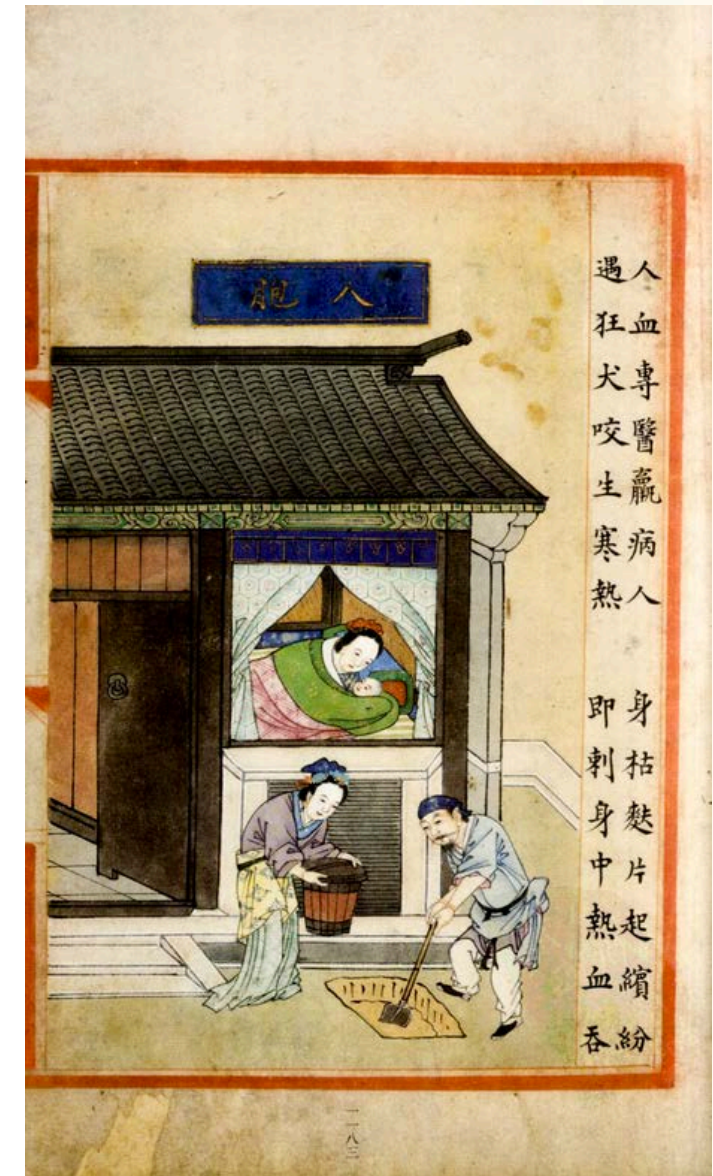 人血專醫羸病人 身枯麩片起繽紛
遇狂犬咬生寒熱 即刺身中熱血吞
人胞
一一八三